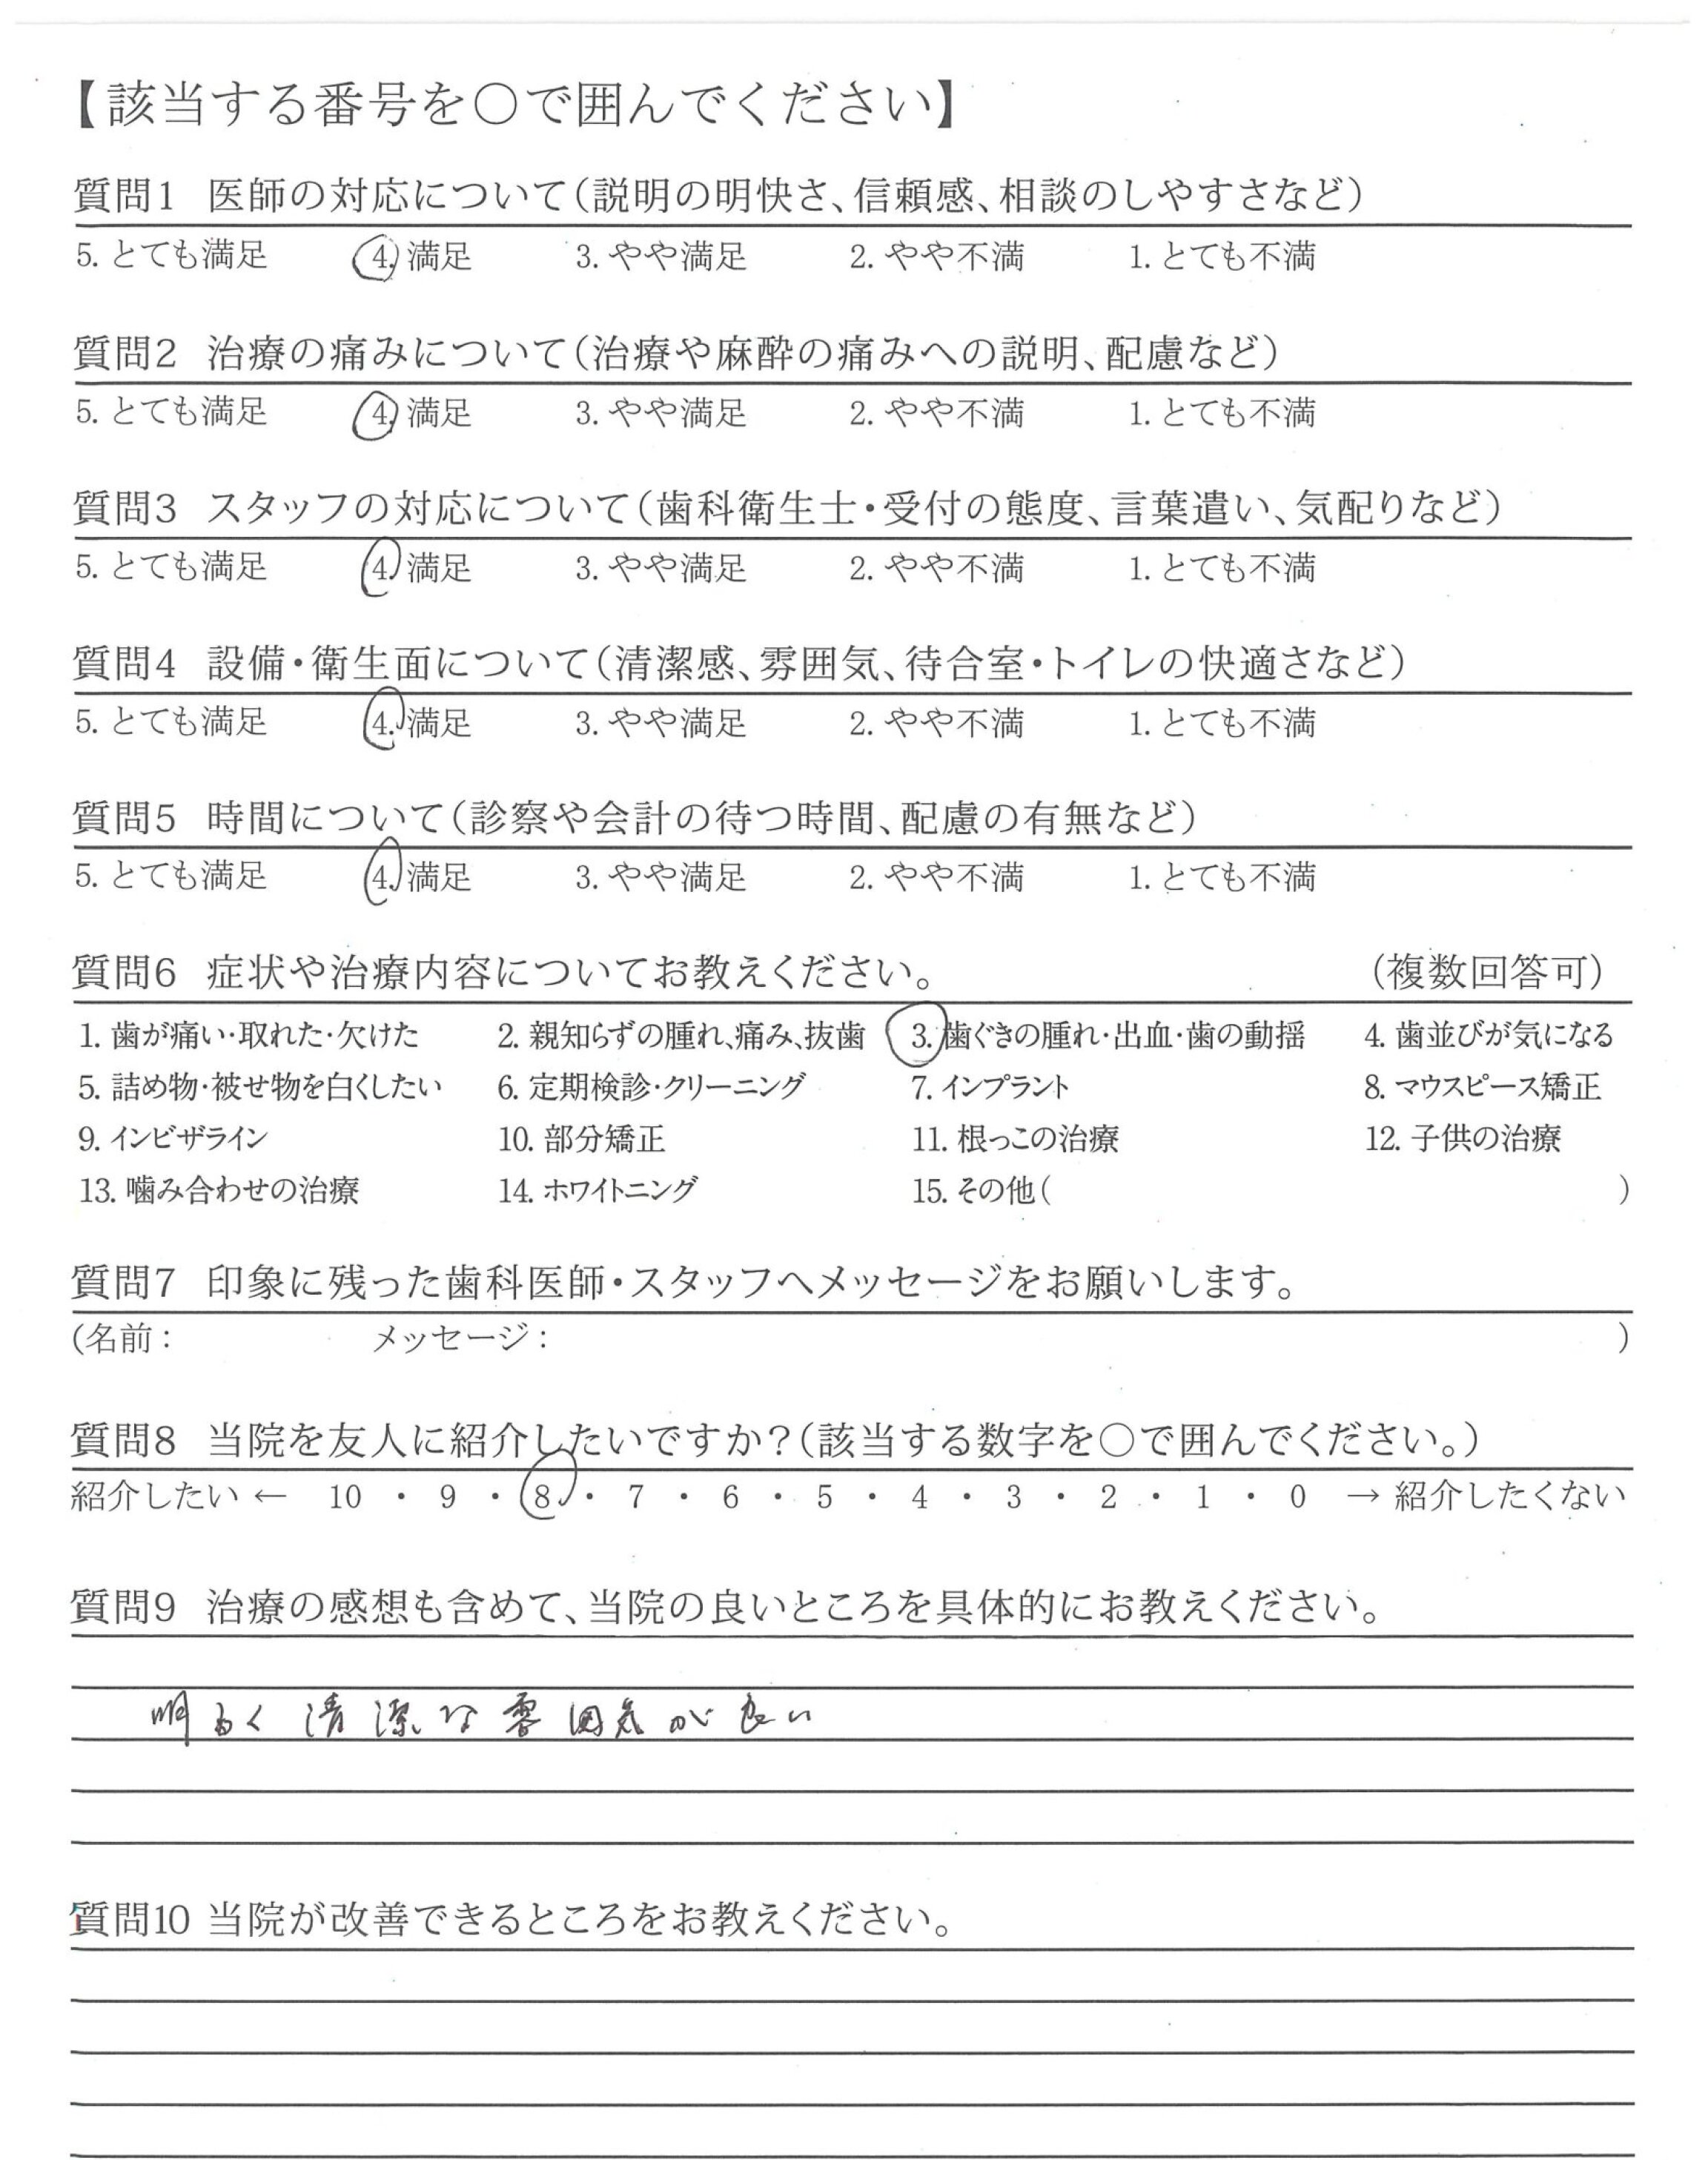 【該当する番号を〇で囲んでください】
質問1 医師の対応について(説明の明快さ、信頼感、相談のしやすさなど)
5. とても満足 4. 満足 3. やや満足 2. やや不満 1. とても不満
質問2 治療の痛みについて(治療や麻酔の痛みへの説明、配慮など)
5. とても満足 4. 満足 3. やや満足 2. やや不満 1. とても不満
質問3 スタッフの対応について(歯科衛生士・受付の態度、言葉遣い、気配りなど)
5. とても満足 4. 満足 3. やや満足 2. やや不満 1. とても不満
質問4 設備・衛生面について(清潔感、雰囲気、待合室・トイレの快適さなど)
5. とても満足 4. 満足 3. やや満足 2. やや不満 1. とても不満
質問5 時間について(診察や会計の待つ時間、配慮の有無など)
5. とても満足 4. 満足 3. やや満足 2. やや不満 1. とても不満
質問6 症状や治療内容についてお教えください。 (複数回答可)
1. 歯が痛い・取れた・欠けた 2. 親知らずの腫れ、痛み、抜歯 3. 歯ぐきの腫れ・出血・歯の動揺 4. 歯並びが気になる
5. 詰め物・被せ物を白くしたい 6. 定期検診・クリーニング 7. インプラント 8. マウスピース矯正
9. インビザライン 10. 部分矯正 11. 根っこの治療 12. 子供の治療
13. 噛み合わせの治療 14. ホワイトニング 15. その他( )
質問7 印象に残った歯科医師・スタッフへメッセージをお願いします。
(名前: メッセージ: )
質問8 当院を友人に紹介したいですか?(該当する数字を〇で囲んでください。)
紹介したい ← 10 ・ 9 ・ 8 ・ 7 ・ 6 ・ 5 ・ 4 ・ 3 ・ 2 ・ 1 ・ 0 → 紹介したくない
質問9 治療の感想も含めて、当院の良いところを具体的にお教えください。
明るく清潔な雰囲気が良い
質問10 当院が改善できるところをお教えください。